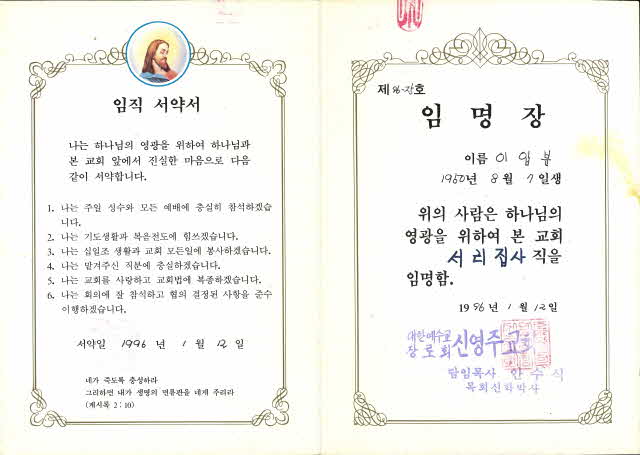 임직 서약서
나는 하나님의 영광을 위하여 하나님과
본 교회 앞에서 진실한 마음으로 다음
같이 서약합니다.
1. 나는 주일 성수와 모든 예배에 충실히 참석하겠습
니다.
2. 나는 기도생활과 복음전도에 힘쓰겠습니다.
3. 나는 십일조 생활과 교회 모든일에 봉사하겠습니다.
4. 나는 맡겨주신 직분에 충실하겠습니다.
5. 나는 교회를 사랑하고 교회법에 복종하겠습니다.
6. 나는 회의에 잘 참석하고 협의 결정된 사항을 준수
이행하겠습니다.
서약일 1996 년 1 월 12 일
네가 죽도록 충성하라
그리하면 내가 생명의 면류관을 네게 주리라
(계시록 2 : 10)
제 호
임 명 장
이름 이 임 분
1950년 8 월 7 일생
위의 사람은 하나님의
영광을 위하여 본 교회
서리집사 직을
임명함.
1996 년 1 월 12 일
대한예수교
장로회 신영주교회
담임목사 안수식
목회신학박사